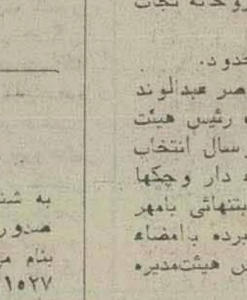 نجات
حدود.
عبدالوند
رئیس هیئت
سال انتخاب
دار و چکها
بتنهائی بامهر
باامضاء
هیئت‌مدیره
به
صدور
بنام
۱۵۲۷